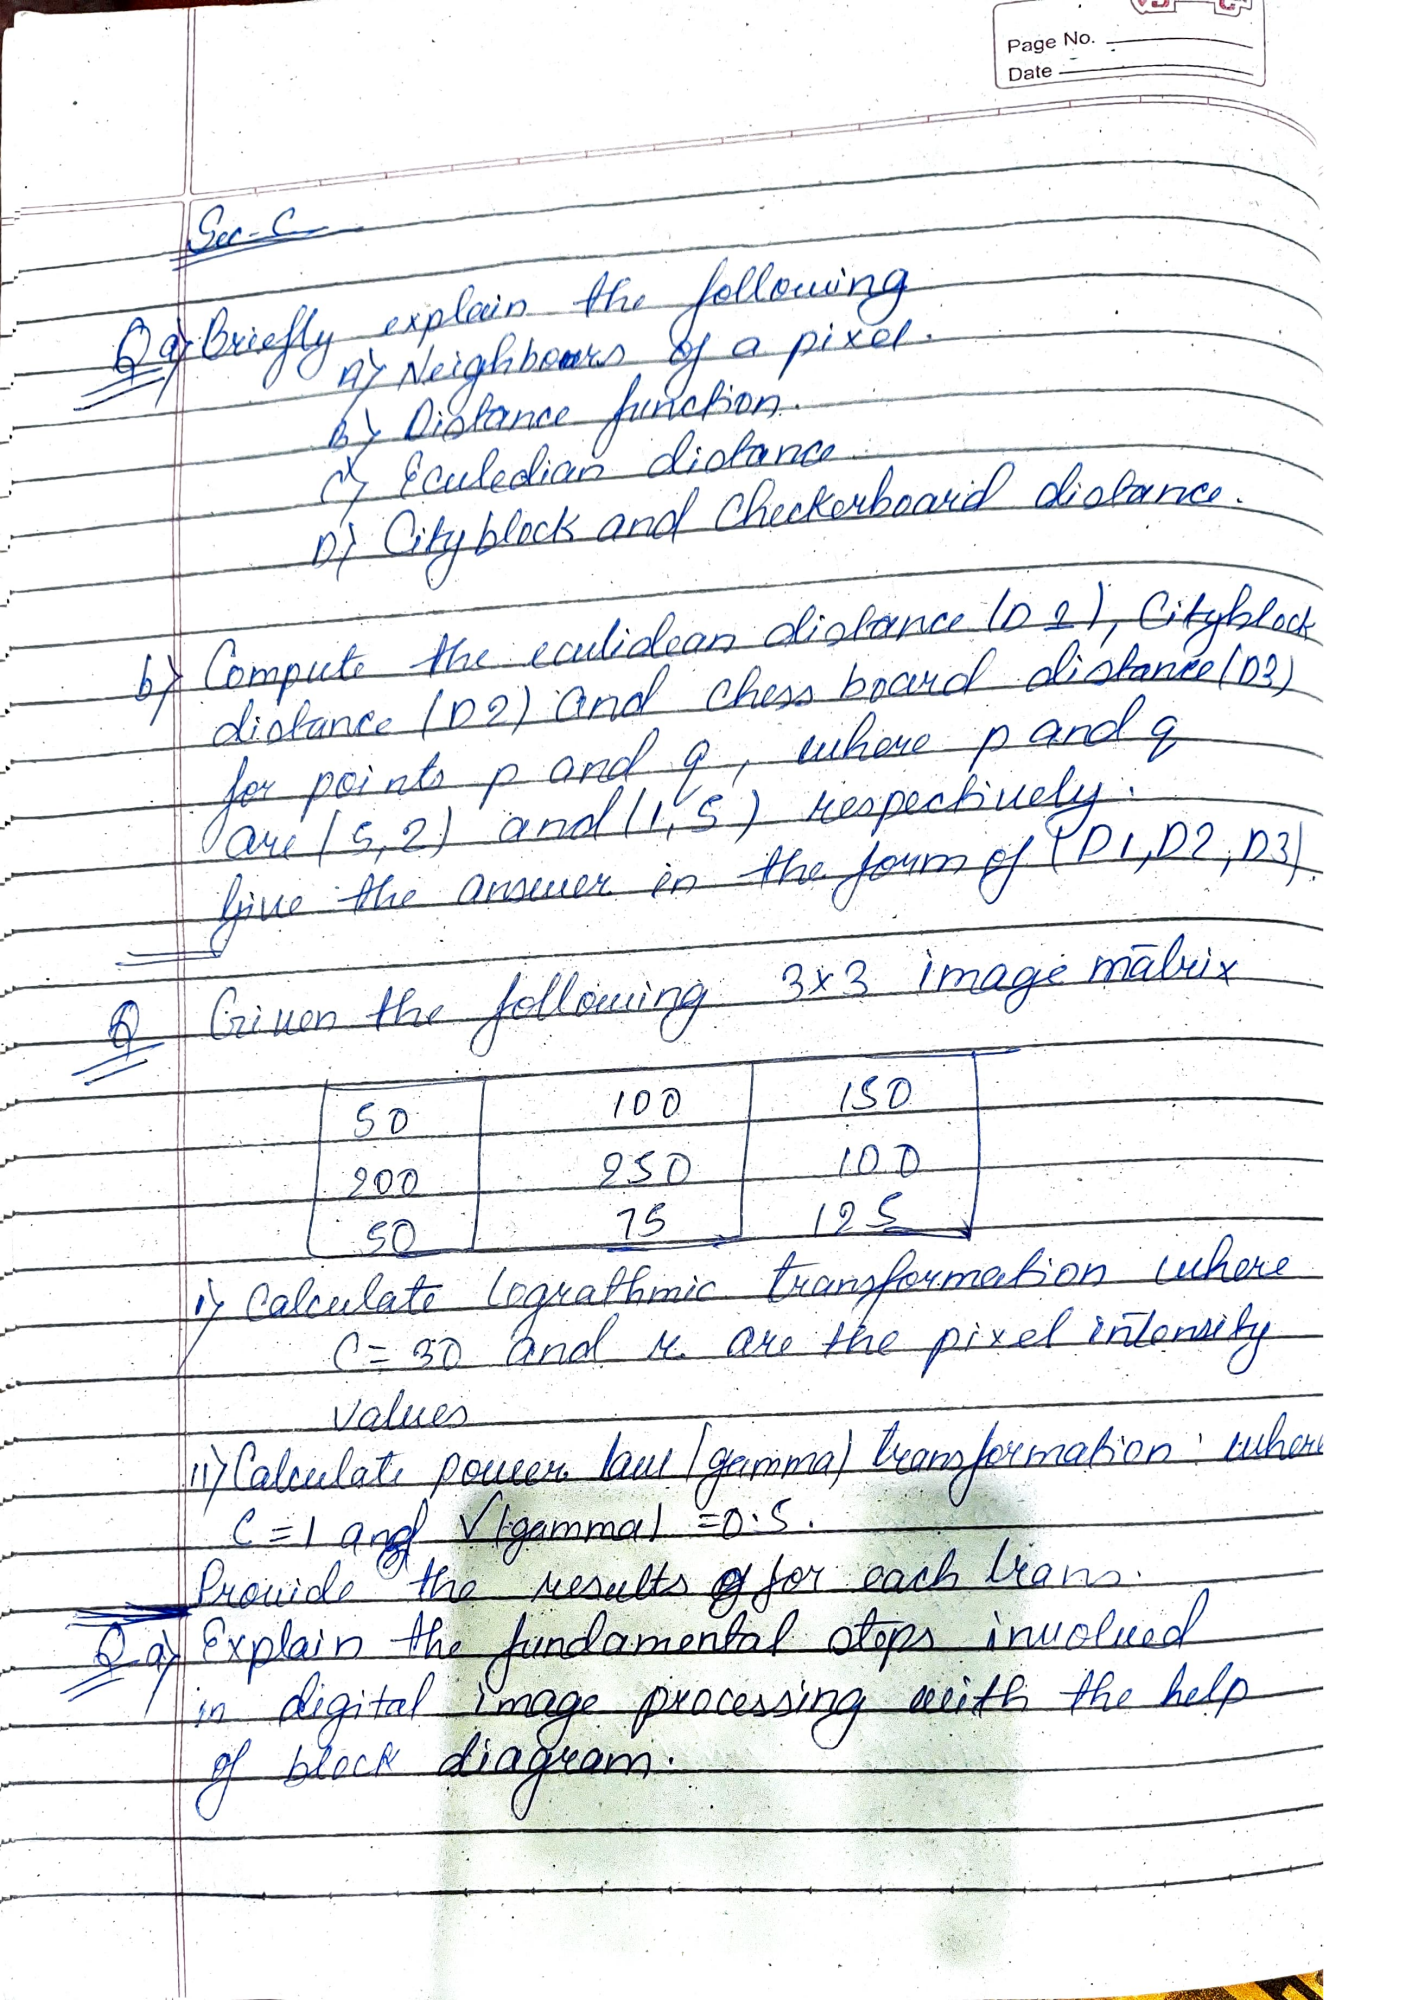 Page No.
Date
Sec-C
Q a) Briefly explain the following
A) Neighbours of a pixel.
B) Distance function.
C) Eculedian distance
D) City block and Checkerboard distance.
b) Compute the eculidean distance (D1), Cityblock
distance (D2) and chess board distance (D3)
for points p and q, where p and q
are (5,2) and (1,5) respectively.
Give the answer in the form of {D1,D2,D3}.
Q Given the following 3x3 image matrix
50 100 150
200 250 100
50 75 125
i) Calculate lograthmic transformation where
C=30 and r. are the pixel intensity
values
ii) Calculate power law (gamma) transformation where
C=1 and √(gamma) =0.5.
Provide the results of for each trans.
Q a) Explain the fundamental steps involved
in digital image processing with the help
of block diagram.